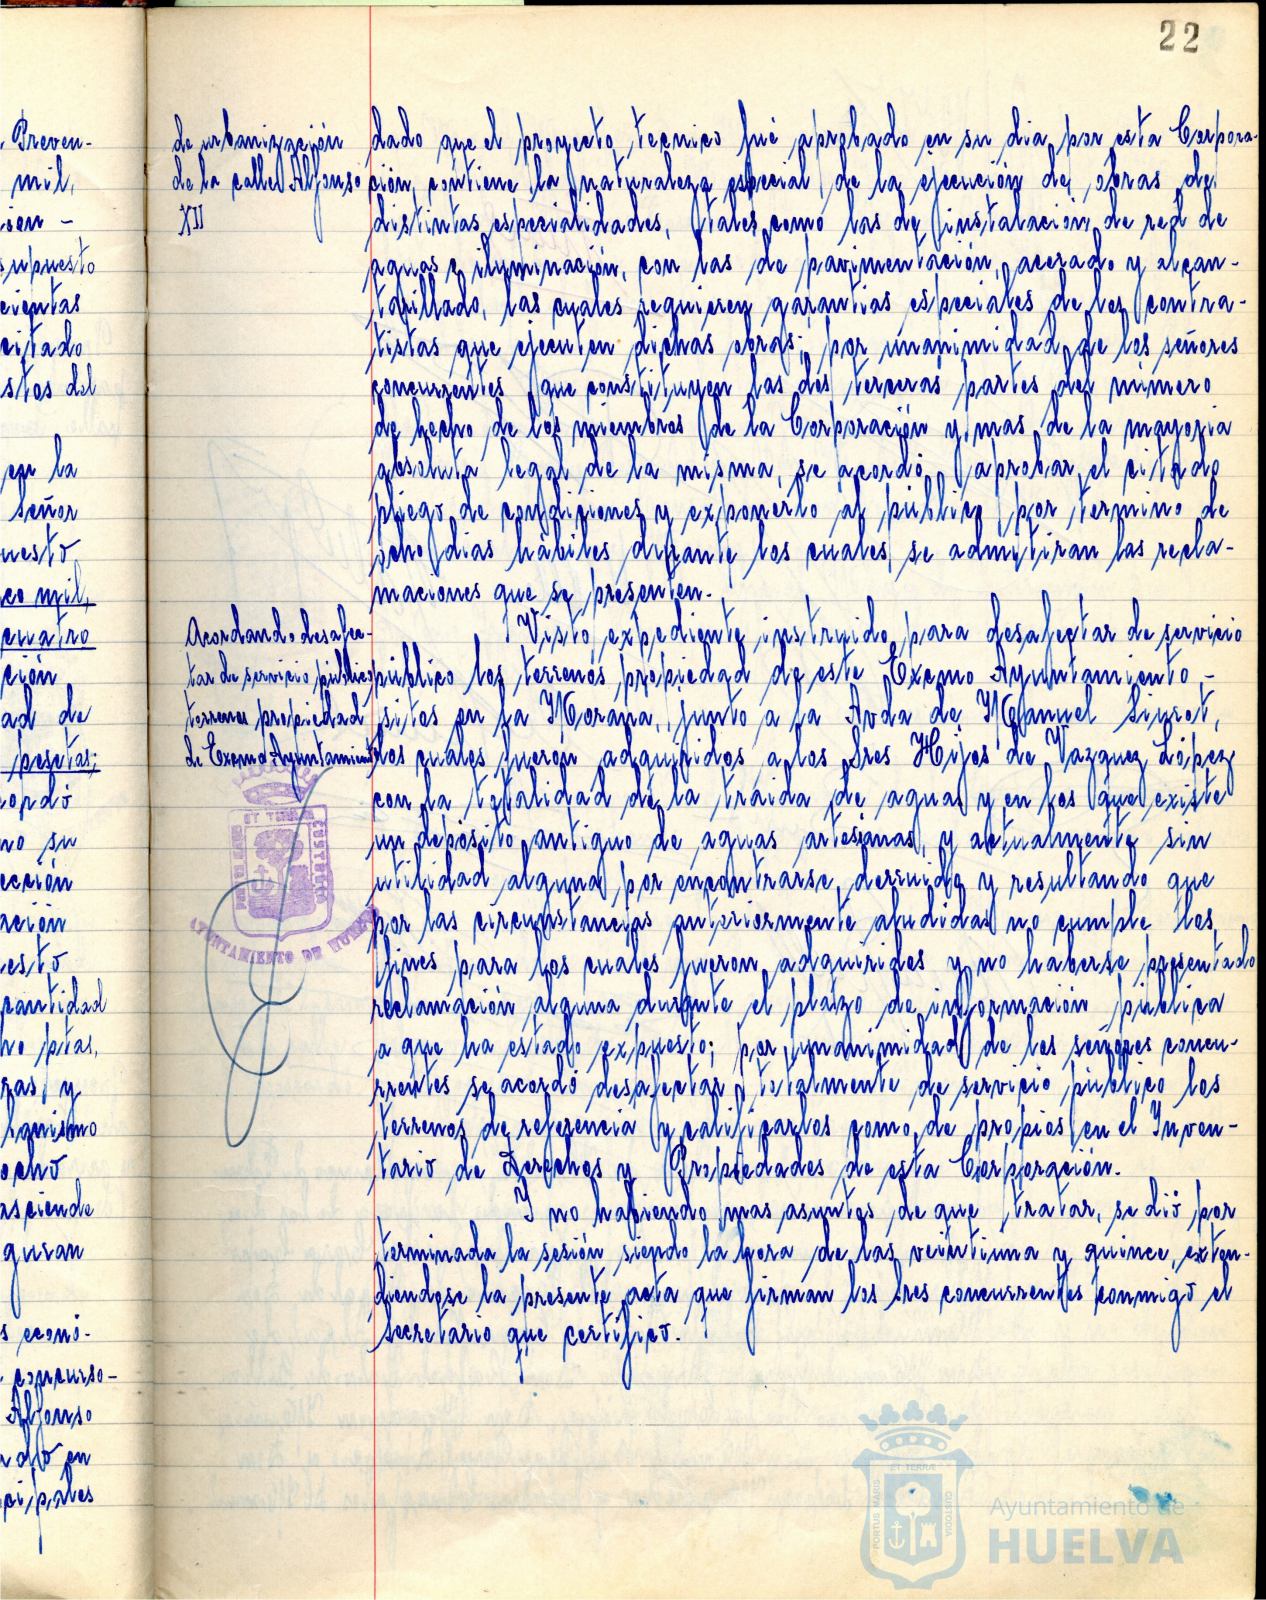 22
. Preven-
mil,
supuesto
cientas
citado
stos del
en la
señor
uesto
co mil,
cuatro
ción
ad de
pesetas;
cordó
no su
ección
ación
esto
cantidad
ho ptas,
ras, y
ocho
asciende
guran
s econó-
concurso-
Alfonso
en
cipales
de urbanización
de la calle Alfonso
XII
dado que el proyecto tecnico fué aprobado en su dia por esta Corpora-
ción, contiene la naturaleza especial de la ejecución de obras de
distintas especialidades, tales como las de instalación de red de
aguas e iluminación, con las de pavimentación, acerado y alcan-
tarillado, las cuales requieren garantias especiales de los contra-
tistas que ejecuten dichas obras; por unanimidad de los señores
concurrentes que constituyen las dos terceras partes del número
de hecho de los miembros de la Corporación y mas de la mayoria
absoluta legal de la misma, se acordó aprobar el citado
pliego de condiciones y exponerlo al público por termino de
ocho dias hábiles durante los cuales se admitiran las recla-
maciones que se presenten.
Acordando desafec-
tar de servicio público
terrenos propiedad
de Excmo Ayuntamiento
Visto expediente instruido para desafectar de servicio
público los terrenos propiedad de este Excmo Ayuntamiento -
sitos en La Morana, junto a la Avda de Manuel Siurot,
los cuales fueron adquiridos a los Sres Hijos de Vazquez López
con la totalidad de la traida de aguas y en los que existe
un depósito antiguo de aguas artesianas, y actualmente sin
utilidad alguna por encontrarse derruido y resultando que
por las circunstancias anteriormente aludidas no cumple los
fines para los cuales fueron adquiridos y no haberse presentado
reclamación alguna durante el plazo de información pública
a que ha estado expuesto; por unanimidad de los señores concu-
rrentes se acordó desafectar totalmente de servicio público los
terrenos de referencia y calificarlos como de propios en el Inven-
tario de Derechos y Propiedades de esta Corporación.
Y no habiendo mas asuntos de que tratar, se dió por
terminada la sesión siendo la hora de las veintiuna y quince, exten-
diendose la presente acta que firman los Sres concurrentes conmigo el
Secretario que certifico.
PORTUS MARIS ET TERRAE CUSTODIA
AYUNTAMIENTO DE HUELVA
PORTUS MARIS ET TERRÆ CUSTODIA
Ayuntamiento de
HUELVA